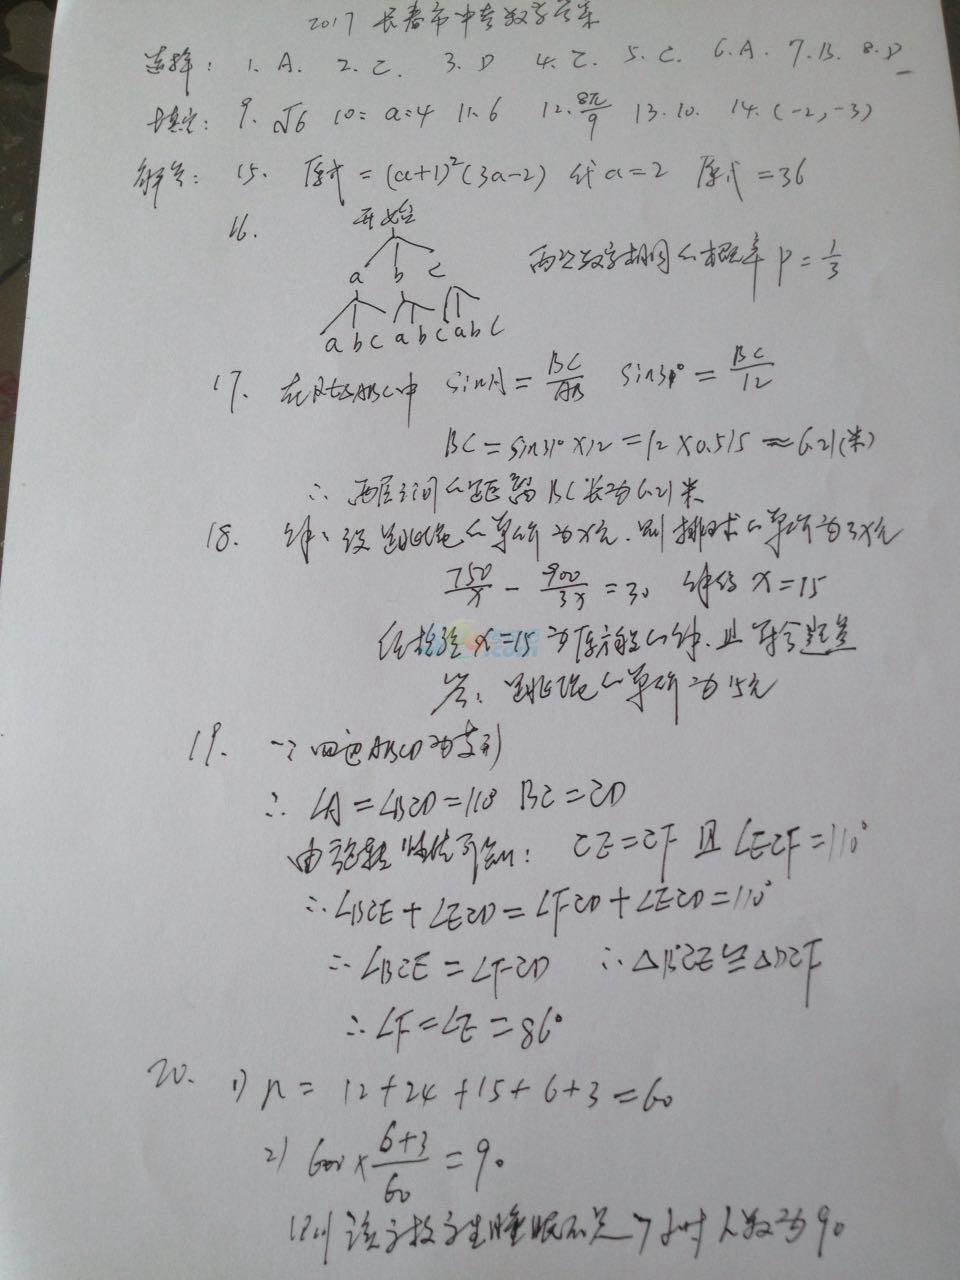 2017 长春市中考数学答案
选择: 1. A. 2. C. 3. D 4. C. 5. C. 6. A. 7. B. 8. D
填空: 9. √6 10: a=4 11. 6 12. 8π/9 13. 10. 14. (-2,-3)
解答: 15. 原式=(a+1)²(3a-2) 代a=2 原式=36
16. 开始
a b c
两次数字相同的概率 P=1/3
a b c a b c a b c
17. 在Rt△ABC中 sinA=BC/AB sin31°=BC/12
BC=sin31°×12=12×0.515≈6.21(米)
∴ 两层之间的距离BC长为6.21米
18. 解: 设跳绳的单价为x元.则排球的单价为3x元
750/x - 900/3x =30 解得 x=15
经检验 x=15 为原方程的解.且符合题意
答: 跳绳的单价为15元
19. ∵四边ABCD为菱形
∴ ∠A=∠BCD=110° BC=CD
由旋转性质可知: CE=CF 且∠ECF=110°
∴∠BCE+∠ECD=∠FCD+∠ECD=110°
∴∠BCE=∠FCD ∴△BCE≌△DCF
∴∠F=∠E=86°
20. 1) n= 12+24+15+6+3=60
2) 600×(6+3)/60=90
估计该学校学生睡眠不足7小时人数为90